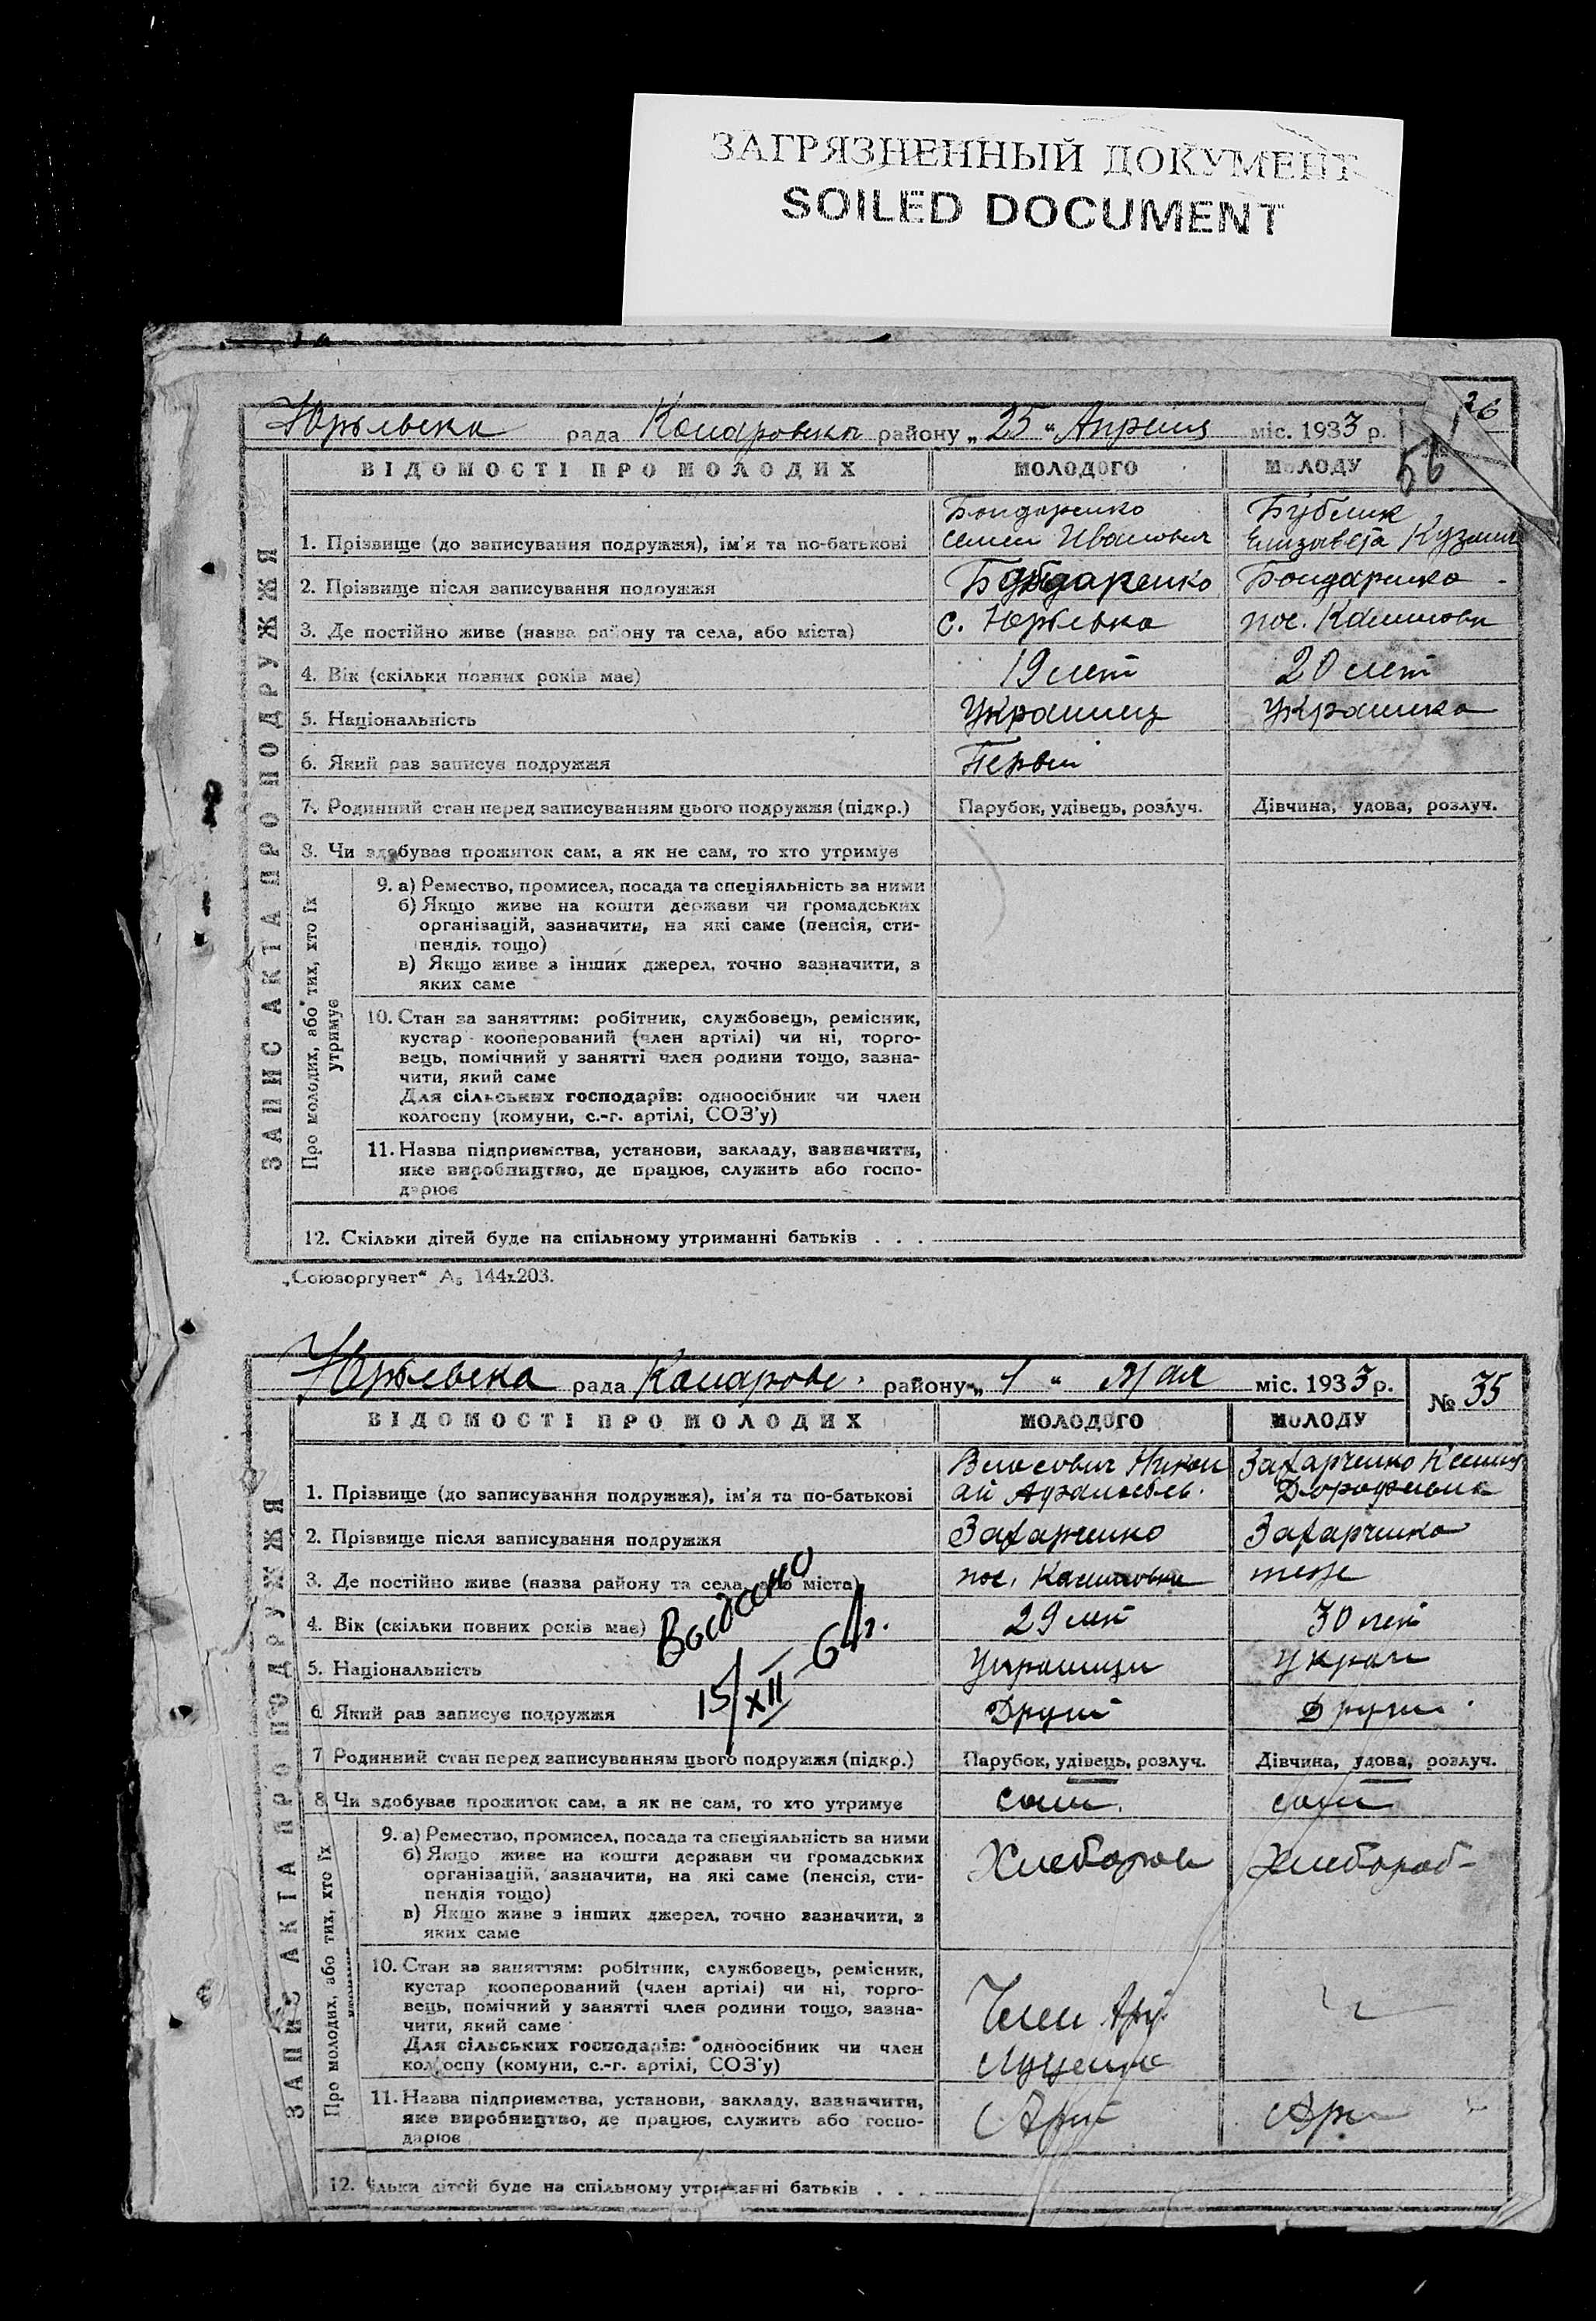 ЗАГРЯЗНЕННЫЙ ДОКУМЕНТ
SOILED DOCUMENT
рада району „ 25 “ Апреля міс. 1933 р.
56
ВІДОМОСТІ ПРО МОЛОДИХ МОЛОДОГО МОЛОДУ
ЗАПИС АКТА ПРО ПОДРУЖЖЯ
1. Прізвище (до записування подружжя), ім'я та по-батькові
Бондаренко
Семен Иванович
Бублик
Елизавета
2. Прізвище після записування подружжя Бондаренко Бондаренко
3. Де постійно живе (назва району та села, або міста) с. пос.
4. Вік (скільки повних років має) 19 лет 20 лет
5. Національність Украинец Украинка
6. Який раз записує подружжя Первий
7. Родинний стан перед записуванням цього подружжя (підкр.) Парубок, удівець, розлуч. Дівчина, удова, розлуч.
8. Чи здобуває прожиток сам, а як не сам, то хто утримує
Про молодих, або тих, хто їх
утримує
9. а) Ремество, промисел, посада та спеціяльність за ними
б) Якщо живе на кошти держави чи громадських
організацій, зазначити, на які саме (пенсія, сти-
пендія тощо)
в) Якщо живе з інших джерел, точно зазначити, з
яких саме
10. Стан за заняттям: робітник, службовець, ремісник,
кустар кооперований (член артілі) чи ні, торго-
вець, помічний у занятті член родини тощо, зазна-
чити, який саме
Для сільських господарів: одноосібник чи член
колгоспу (комуни, с.-г. артілі, СОЗ'у)
11. Назва підприємства, установи, закладу, зазначити,
яке виробництво, де працює, служить або госпо-
дарює
12. Скільки дітей буде на спільному утриманні батьків . . .
„Союзоргучет“ А5 144х203.
рада району „ 1 “ Мая міс. 1933 р. № 35
ВІДОМОСТІ ПРО МОЛОДИХ МОЛОДОГО МОЛОДУ
ЗАПИС АКТА ПРО ПОДРУЖЖЯ
1. Прізвище (до записування подружжя), ім'я та по-батькові
Власович Никол
ай
Захарченко
2. Прізвище після записування подружжя Захарченко Захарченко
3. Де постійно живе (назва району та села, або міста) пос. тоже
4. Вік (скільки повних років має) 29 лет 30 лет
5. Національність Украинец Украи
6. Який раз записує подружжя Другий Други
Видано
15/XII-64г.
7. Родинний стан перед записуванням цього подружжя (підкр.) Парубок, удівець, розлуч. Дівчина, удова, розлуч.
8. Чи здобуває прожиток сам, а як не сам, то хто утримує сам
Про молодих, або тих, хто їх
9. а) Ремество, промисел, посада та спеціяльність за ними
б) Якщо живе на кошти держави чи громадських
організацій, зазначити, на які саме (пенсія, сти-
пендія тощо)
в) Якщо живе з інших джерел, точно зазначити, з
яких саме
Хлебороб Хлебороб-
10. Стан за заняттям: робітник, службовець, ремісник,
кустар кооперований (член артілі) чи ні, торго-
вець, помічний у занятті член родини тощо, зазна-
чити, який саме
Для сільських господарів: одноосібник чи член
колгоспу (комуни, с.-г. артілі, СОЗ'у)
Член
11. Назва підприємства, установи, закладу, зазначити,
яке виробництво, де працює, служить або госпо-
дарює
12. ільки дітей буде на спільному утриманні батьків . . .